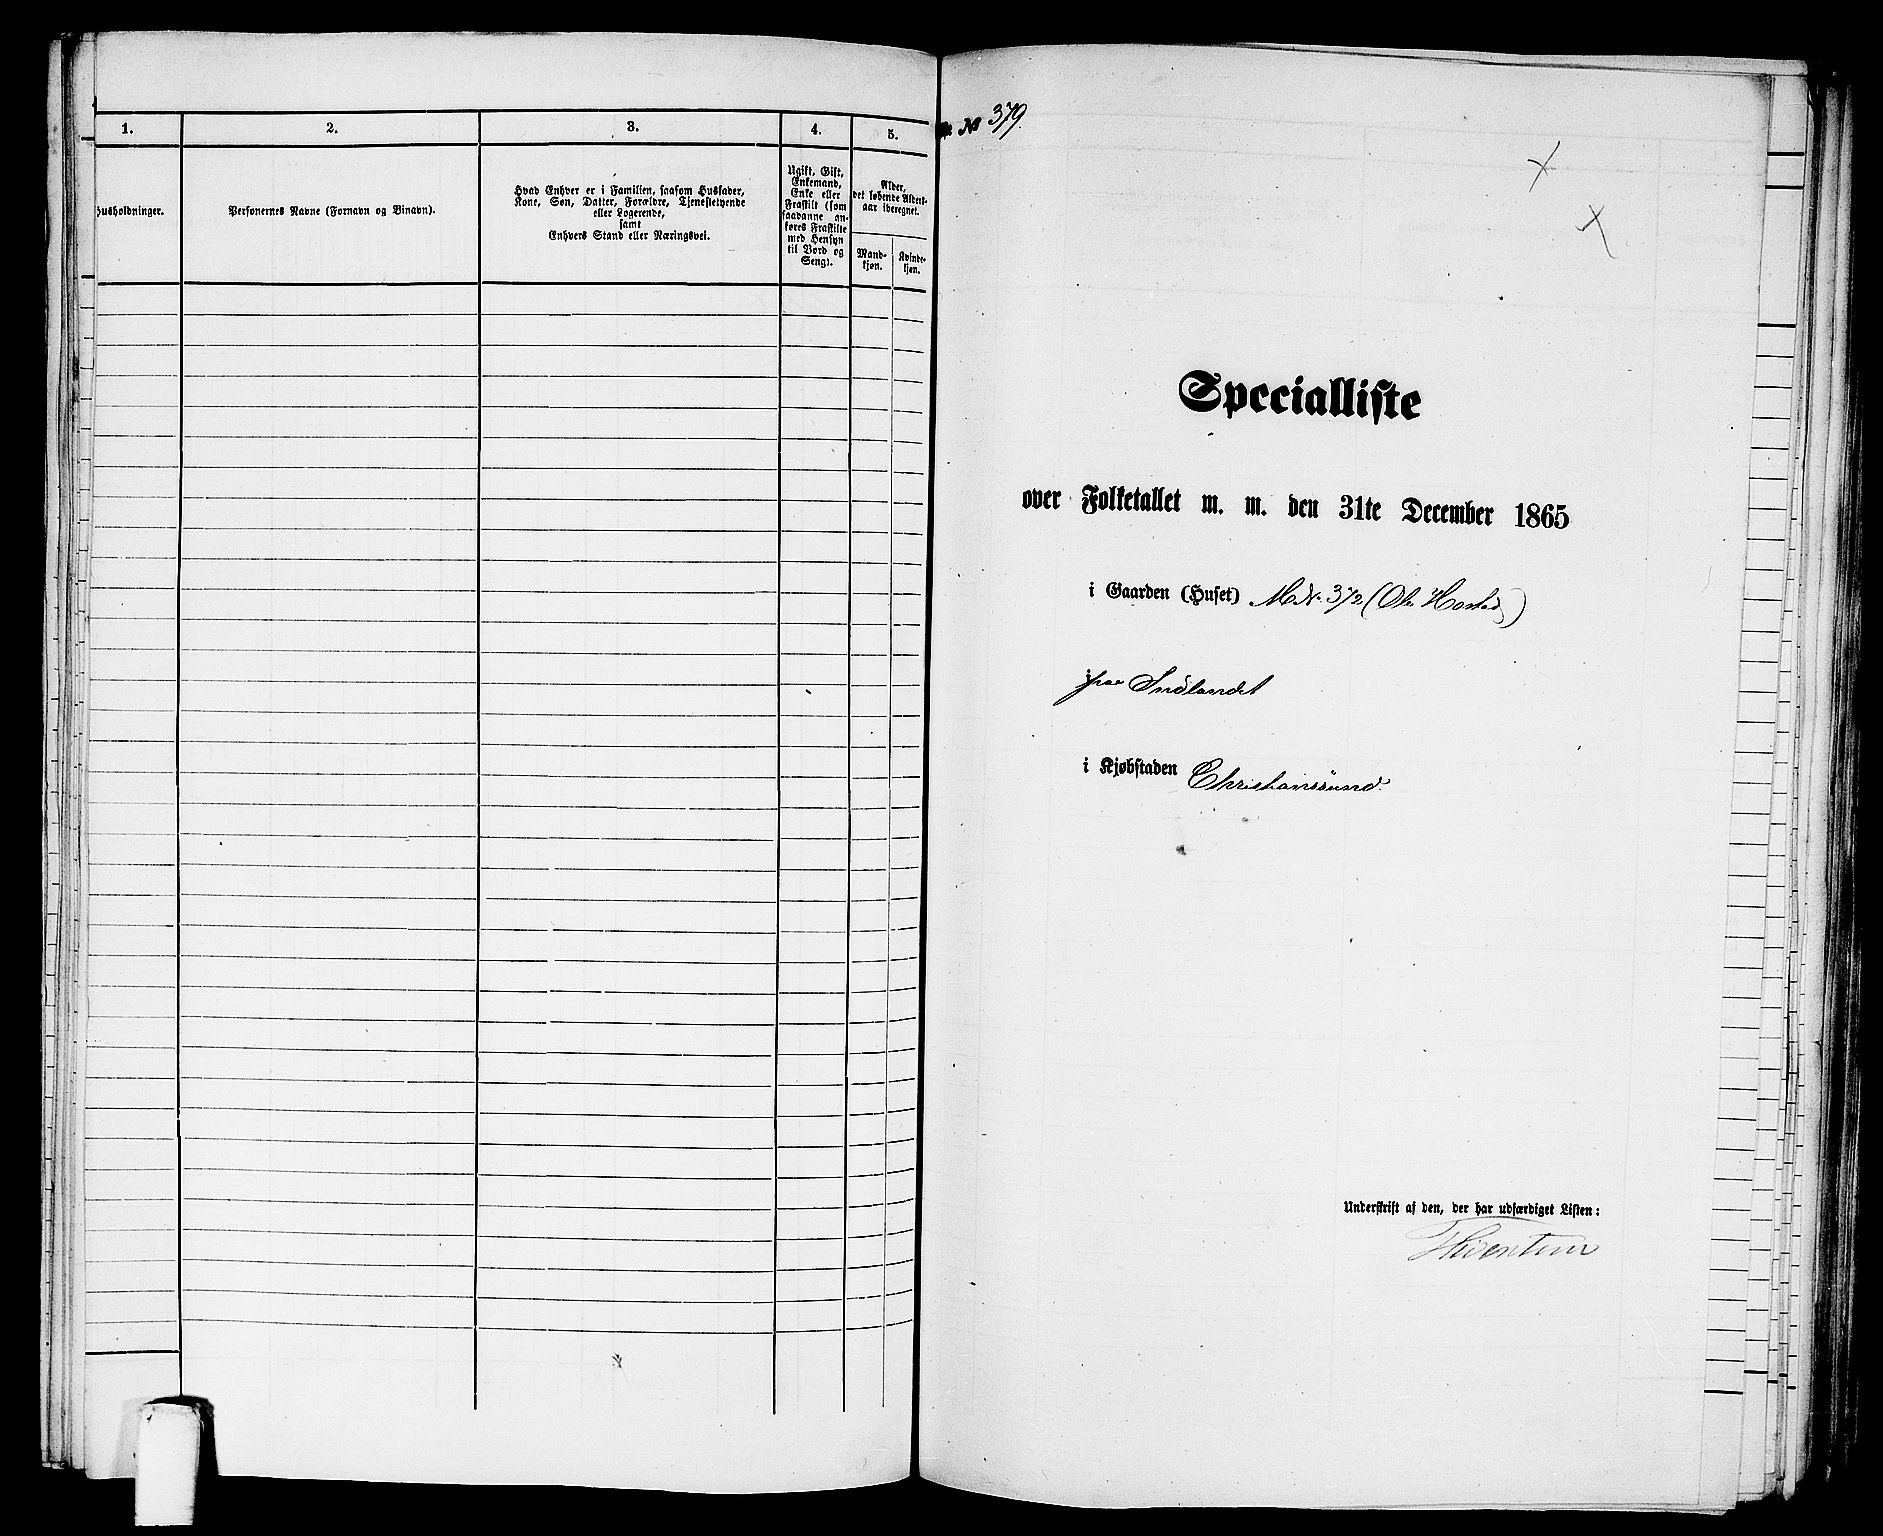 1.
2.
3.
4.
5.
Husholdninger.
Personernes Navne (Fornavn og Binavn).
Hvad Enhver er i Familien, saasom Husfader,
Kone, Søn, Datter, Forældre, Tjenestetyende
eller Logerende,
samt
Enhvers Stand eller Næringsvei.
Ugift, Gift,
Enkemand,
Enke eller
Fraskilt (som
saadanne an-
føres Fraskilte
med Hensyn
til Bord og
Seng).
Alder,
det løbende Alders-
aar iberegnet.
Mand-
kjøn.
Kvinde-
kjøn.
№ 379.
Specialliste
over Folketallet m. m. den 31te December 1865
i Gaarden (Huset) M. N. 372 (Ole Hostad)
paa Indlandet
i Kjøbstaden Christianssund.
Underskrift af den, der har udfærdiget Listen: